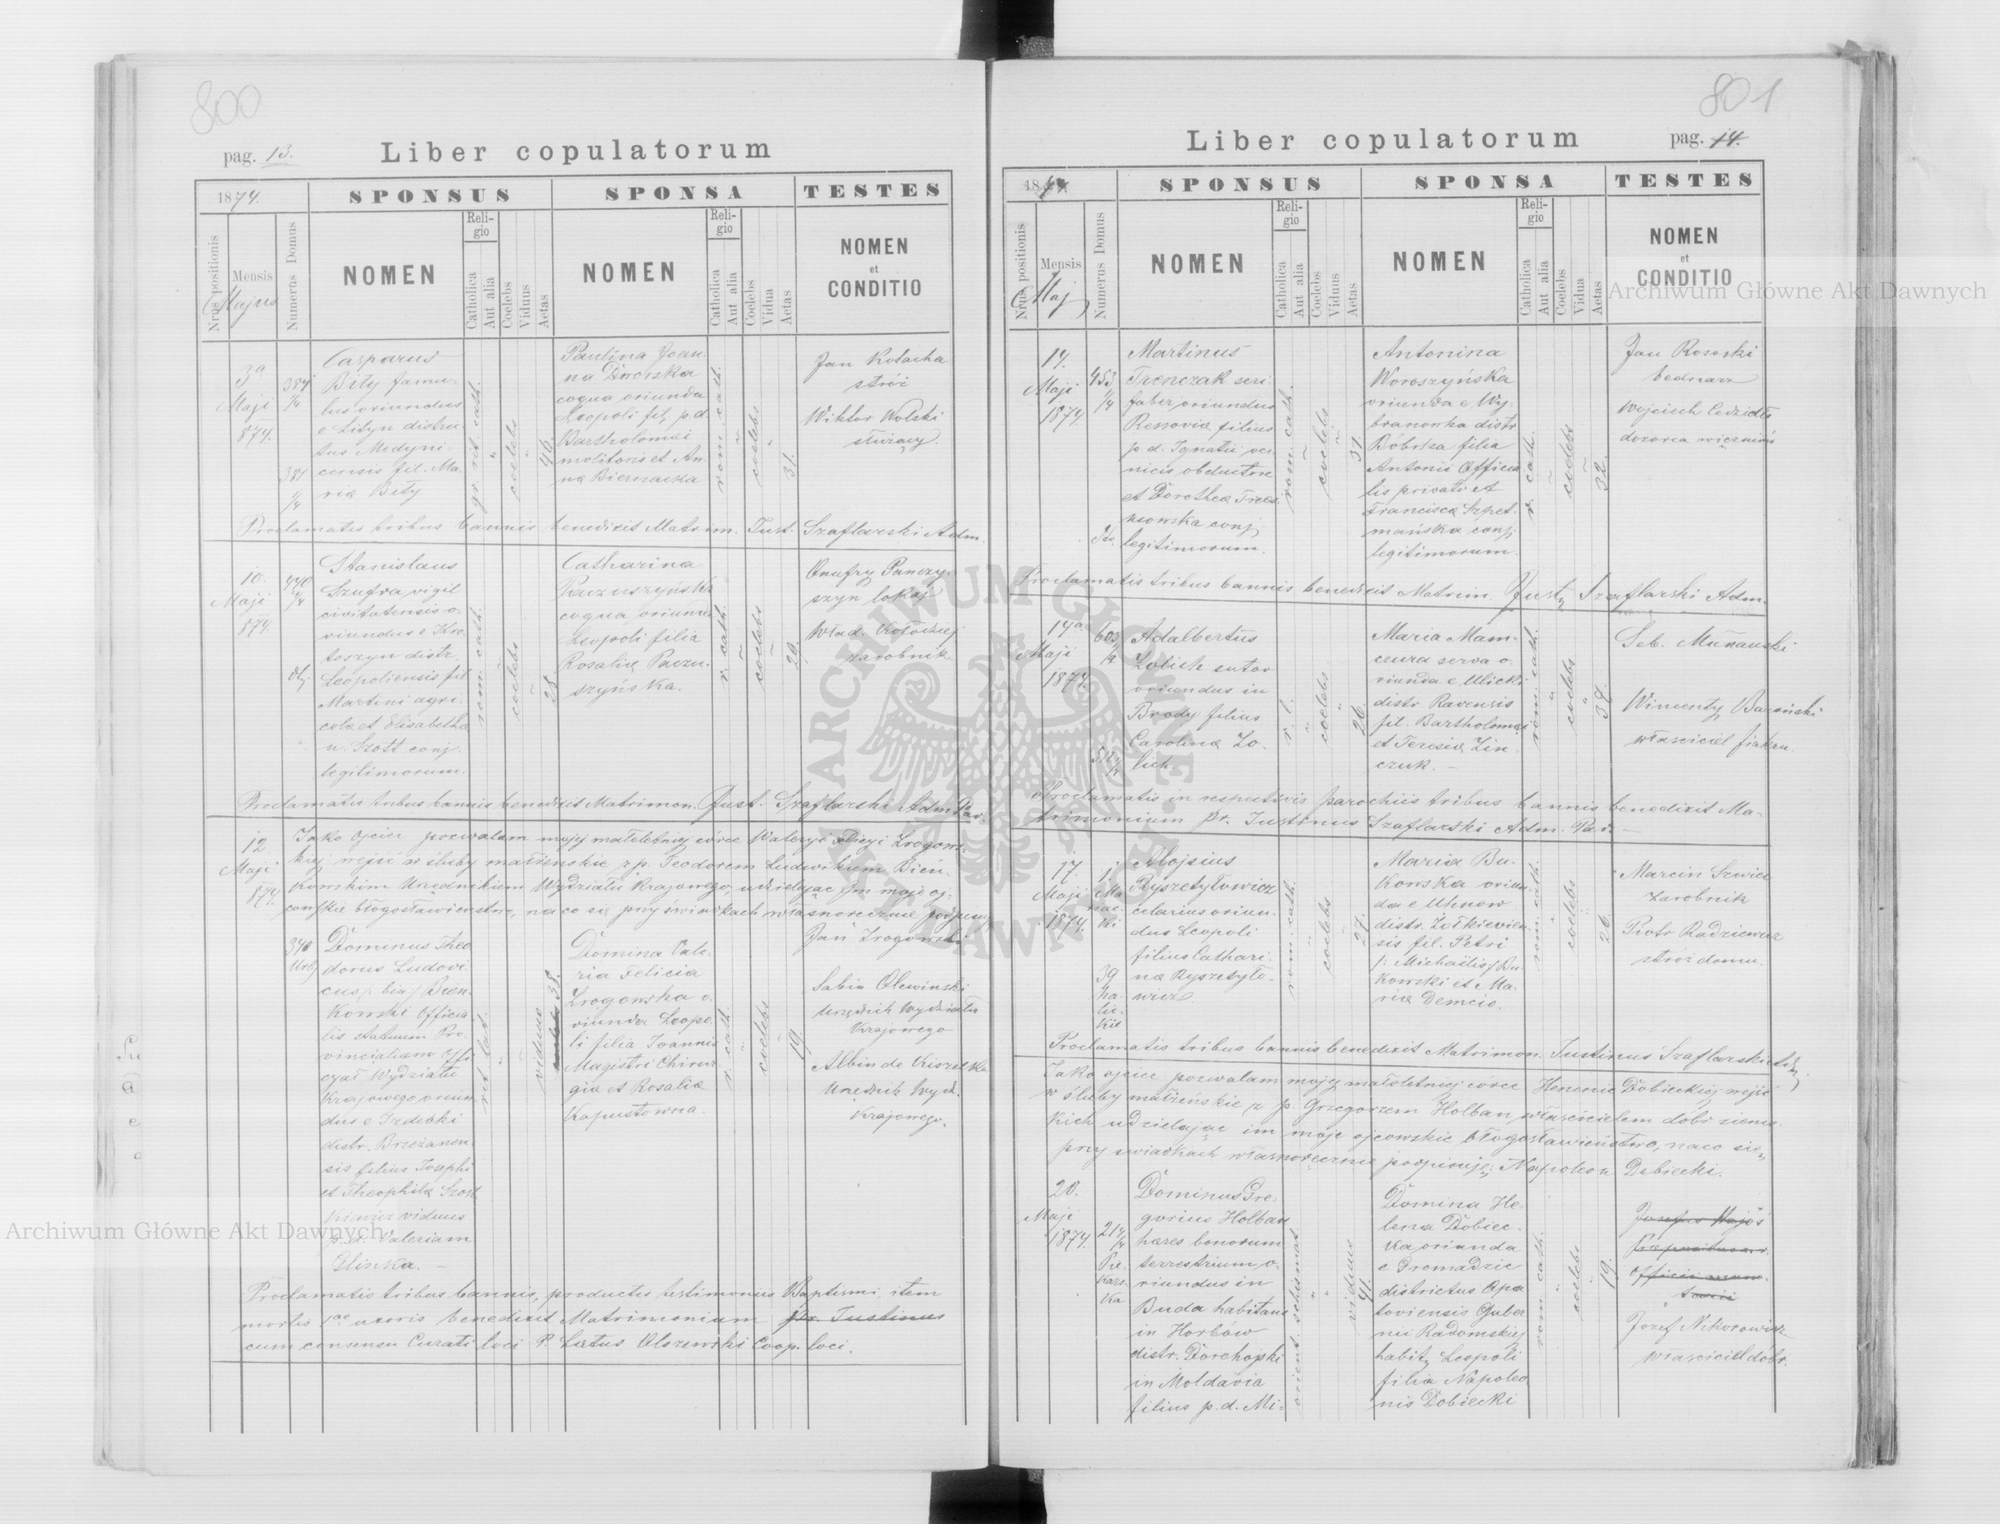 800
pag. 13.
Liber copulatorum
1874.
SPONSUS
SPONSA
TESTES
Nrus positionis
Mensis
Majus
Numerus Domus
NOMEN
Religio
Catholica
Aut alia
Coelebs
Viduus
Aetas
NOMEN
Religio
Catholica
Aut alia
Coelebs
Vidua
Aetas
NOMEN
et
CONDITIO
3a
Maji
874.
384
2/4
Casparus
Bity famu-
lus oriundus
e Lityn distric
tus Medyni
censis fil. Ma-
ria Bity
gr. rit cath.
coelebs
40.
Paulina Joan
na Dworska
coqua oriunda
Leopoli fil. p. d.
Bartholomei
molitoris et An
na Biernacka
rom. cath.
coelebs
31.
Jan Kolacha
stróż
Wiktor Wolski
Proclamatis tribus bannis benedixit Matrim. Just. Szaflarski Adm.
10.
Maji
874.
440
2/4
Stanislaus
Szufra vigil
civitatensis o-
riundus e Kro
toszyn distr.
Leopoliensis fil
Martini agri
cola et Elisabetha
n. Szott conj.
legitimorum.
rom. cath.
coelebs
28
Catharina
coqua oriunda
Leopoli filia
Rosalia Paczu-
szyńska.
r. cath.
coelebs
29
Onufry Panczy
szyn lokaj
Wład. Kołodziej
zarobnik
Proclamatis tribus bannis benedixit Matrimon. Just. Szaflarski Adm. Par.
12
Maji
874.
Jako Ojciec pozwalam mojej małoletniej córce Waleryi Felicyi Zrogows-
kiej wejść w śluby małżeńskie z p. Teodorem Ludwikiem Bień-
kowskim Urzędnikiem Wydziału Krajowego, udzielając Im moje oj-
cowskie błogosławieństwo, na co się przy świadkach własnoręcznie podpisuję
Jan Zrogowski
340
Dominus Theo
dorus Ludovi
cus p. bia Bien-
kowski Officia
lis statuum Pro-
vincialium Offi
cyał Wydziału
Krajowego oriun
dus e Izdebki
distr. Brzeżanen
sis filius Josephi
et Theophila Szost
kiewicz viduus
post Valeriam
Glinka.
rit lat.
viduus
38.
Domina Vale-
ria Felicia
Zrogowska o-
riunda Leopo-
li filia Joannis
Magistri Chirur
gia et Rosalia
Kapustowna.
r. cath.
coelebs
19.
Sabin Olewinski
Urzędnik Wydziału
Krajowego
Albin de Kiszelka
Urzędnik Wyd.
Krajowego.
Proclamatis tribus bannis, productis testimoniis Baptismi, item
mortis 1ae uxoris benedixit Matrimonium pr. Justinus
cum consensu Curati loci P. Lætus Olszewski Coop. loci.
801
pag. 14.
Liber copulatorum
1874.
SPONSUS
SPONSA
TESTES
Nrus positionis
Mensis
Maj
Numerus Domus
NOMEN
Religio
Catholica
Aut alia
Coelebs
Viduus
Aetas
NOMEN
Religio
Catholica
Aut alia
Coelebs
Vidua
Aetas
NOMEN
et
CONDITIO
14.
Maji
1874.
453
1/4
Martinus
Trenczak seri
faber oriundus
Ressovia filius
p. d. Ignatii ver
nicis obductore
et Dorothea Trzes
niowska conj.
legitimorum.
rom. cath.
coelebs
31.
Antonina
Woroszyńska
oriunda e Wy-
branowka distr.
Bóbrka filia
Antonii Officia
lis privati et
Francisca Szpet
mańska conj.
legitimorum.
r. cath.
coelebs
32.
Jan Rososki
bednarz
Wojciech Cedzidło
dozorca więzniów
Proclamatis tribus bannis benedixit Matrim. Just. Szaflarski Adm.
17a
Maji
1874.
603
2/4
Adalbertus
Zolich sutor
oriundus in
Brody filius
Carolina Zo-
lich.
r. l.
coelebs
26
Maria Mam-
czura serva o-
riunda e Ulicki
distr. Ravensis
fil. Bartholomaei
et Teresia Zin
czuk.
rom. cath.
coelebs
38.
Seb. Munauski
Wincenty Bazański
właściciel fiakru.
Proclamatis in respectivis parochiis tribus bannis benedixit Ma-
trimonium Pr. Justinus Szaflarski Adm. Par.
17.
Maji
1874.
Aloisius
Ryszetyłowicz
celarius oriun-
dus Leopoli
filius Cathari-
na Ryszetyło-
wicz.
rom. cath.
coelebs
27.
Maria Bu-
kowska oriun-
da e Uhnow
distr. Zołkiewien
sis fil. Petri
p. Michaëlis Bu-
kowski et Ma-
ria Demcio.
rom. cath.
coelebs
26
Marcin Szwiec
Zarobnik
Piotr Radziewicz
stróż domu.
Proclamatis tribus bannis benedixit Matrimon. Justinus Szaflarski Adm.
Jako ojciec pozwalam mojej małoletniej córce Helenie Dobieckiej wejść
w śluby małżeńskie z p. Grzegorzem Holban, właścicielem dóbr ziems-
kich udzielając im moje ojcowskie błogosławieństwo, na co się
przy świadkach własnoręcznie podpisuję; Napoleon Dobiecki.
20.
Maji
1874.
214
2/4
Pie-
kars-
ka
Dominus Gre-
gorius Holban
hæres bonorum
terrestrium o-
riundus in
Buda habitans
in Horbów
distr. Dorohojski
in Moldavia
filius p. d. Mi-
orient. schismat.
viduus
41.
Domina He-
lena Dobiec-
ka oriunda
e Gromadzic
districtus Opa
toviensis Guber
nii Radomskiej
habit. Leopoli
filia Napoleo
nis Dobiecki
rom. cath.
coelebs
19.
Józef Nikorowicz
właściciel dóbr.
Archiwum Główne Akt Dawnych
Archiwum Główne Akt Dawnych
ARCHIWUM GŁÓWNE AKT DAWNYCH